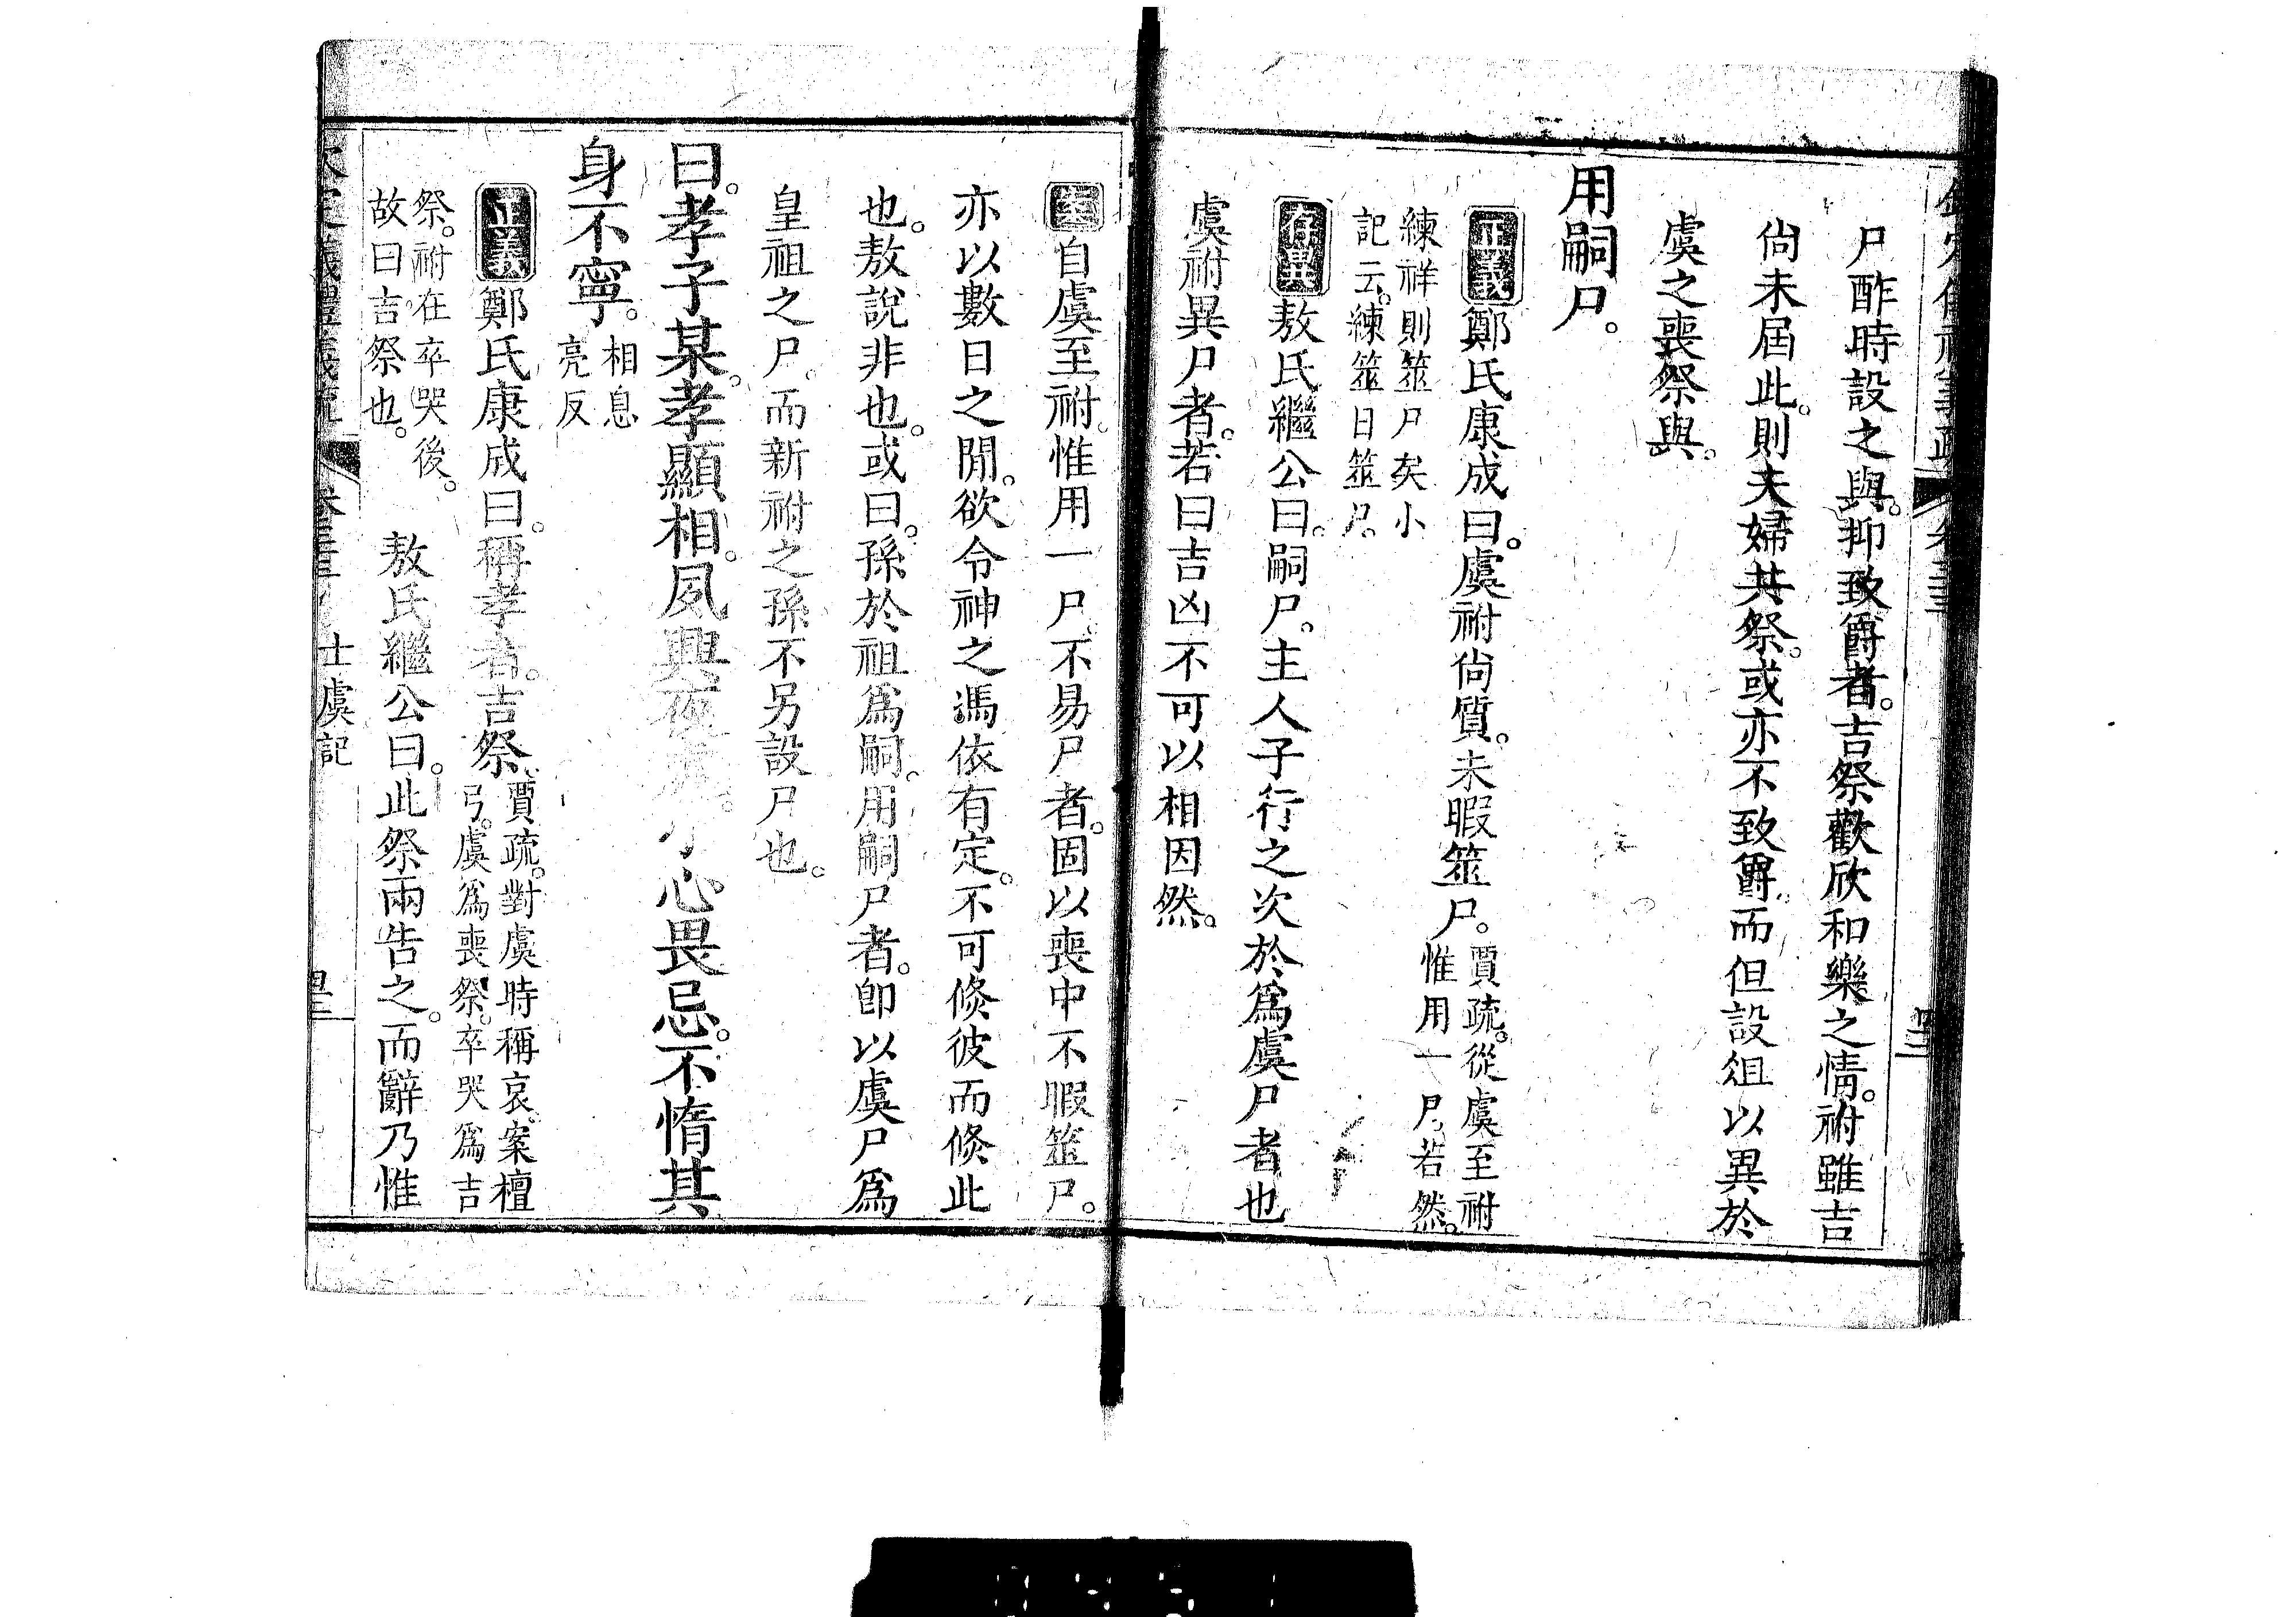 尸酢時設之與。抑致爵者。吉祭歡欣和樂之情。祔雖吉
尙未屆此。則夫婦共祭。或亦不致爵。而但設俎以異於
虞之喪祭與。
用嗣尸。
正義鄭氏康成曰。虞祔尙質。未暇筮尸。賈疏。從虞至祔
惟用一尸。若然。
練祥則筮尸矣小
記云。練筮日筮尸。
存異敖氏繼公曰。嗣尸。主人子行之次於爲虞尸者也
虞祔異尸者。若曰吉凶不可以相因然。
案自虞至祔。惟用一尸。不易尸者。固以喪中不暇筮尸。
亦以數日之閒。欲令神之馮依有定。不可倏彼而倏此
也。敖說非也。或曰。孫於祖爲嗣。用嗣尸者。卽以虞尸爲
皇祖之尸。而新祔之孫不另設尸也。
曰。孝子某。孝顯相。夙興夜處。小心畏忌。不惰其
身不寧。相息
亮反
正義鄭氏康成曰。稱孝者。吉祭。賈疏。對虞時稱哀。案檀
弓。虞爲喪祭。卒哭爲吉
祭。祔在卒哭後。
故曰吉祭也。
敖氏繼公曰。此祭兩告之。而辭乃惟
欽定儀禮義疏
士虞記